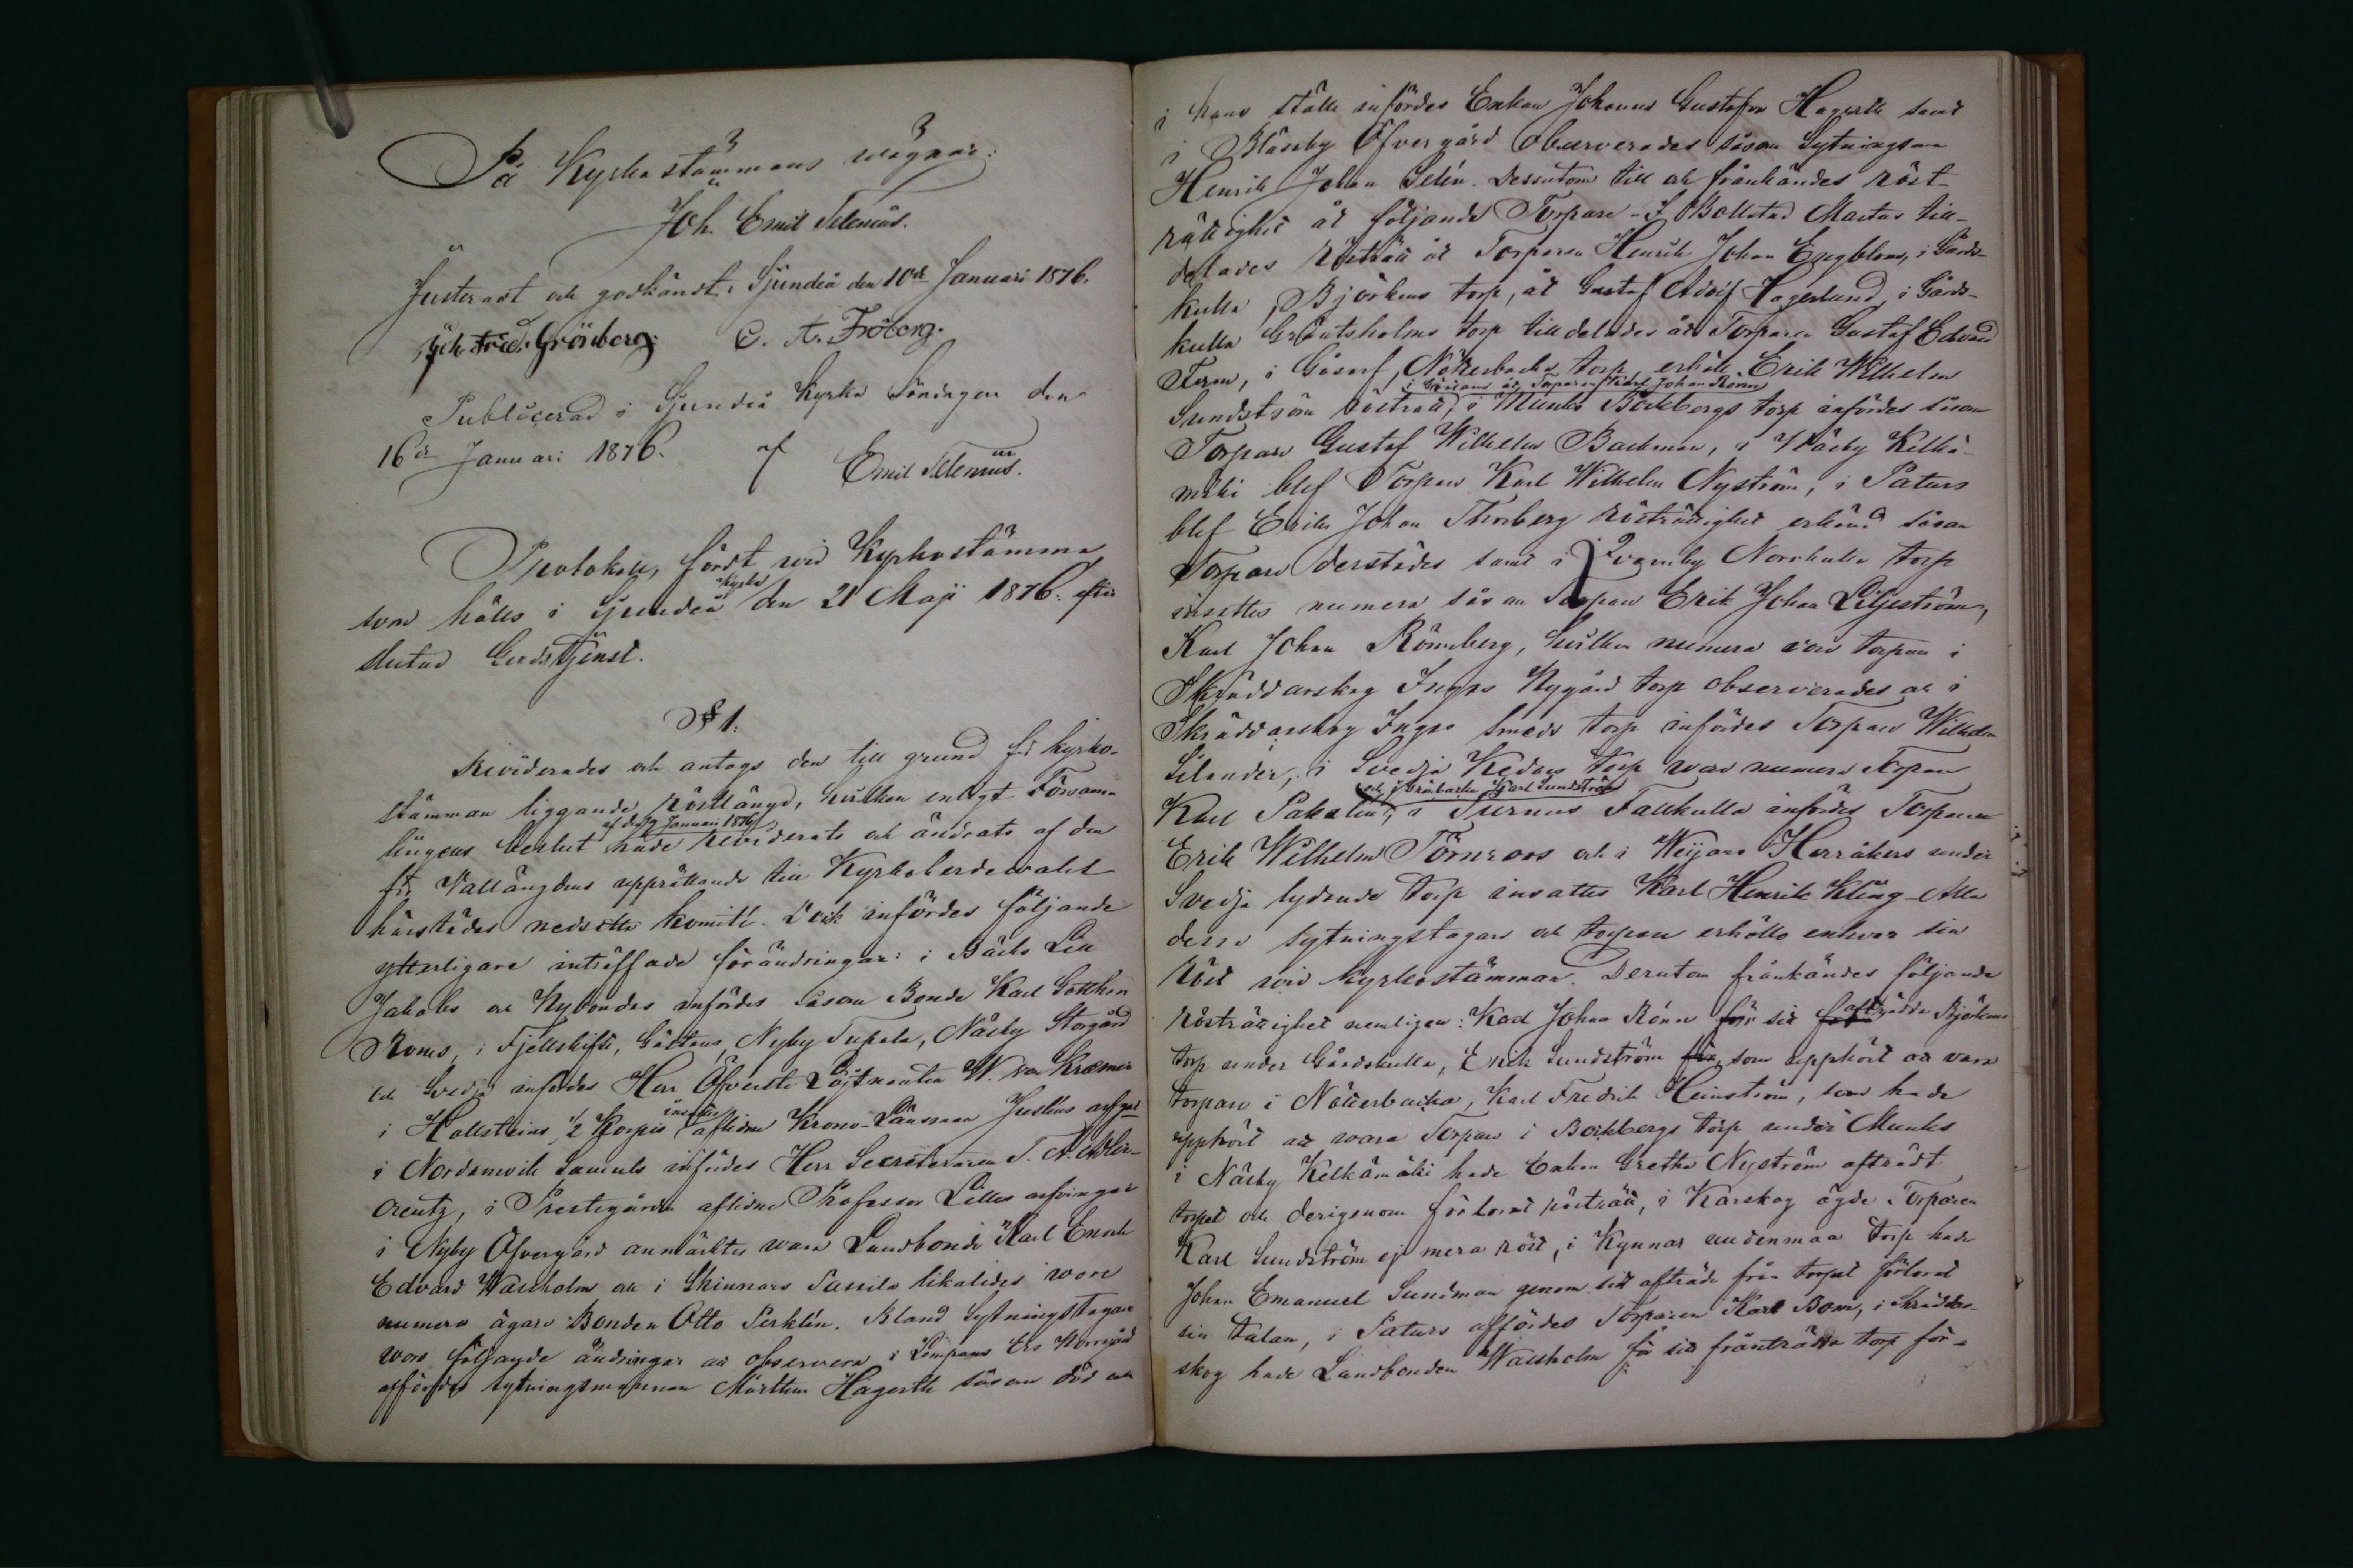 På Kyrkostämmans wägnar:
Joh. Emil Telenius.
Justeradt och godkändt, Sjundeå den 10de Januari 1876.
Fred. Grönberg. C. A. Fröberg.
Publicerad i Sjundeå Kyrka Söndagen den
16de Januari 1876. af Emil Telenius.
Protokoll, fördt wid Kyrkostämma
som hölls i Sjundeå Kyrka den 21 Maji 1876 efter
slutad Gudstjenst.
§ 1.
Reviderades och antogs den till grund för kyrko-
stämman liggande Röstlängd, hvilken enligt Försam-
lingens beslut af d. 9 Januari 1876 hade reviderats och ändrats af den
för Vallängdens upprättande till Kyrkoherdevalet
härstädes nedsatta komité. Och infördes följande
ytterligare inträffade förändringar: i Bäcks Lill
Jakobs och Nybondas infördes såsom Bonde Karl
Roms, i Fjellskifte, Gästans, Nyby Tupala, Näsby Storgård
och Svedja infördes Herr Öfverste Löjtnanten W. von Kræmer
i Hallsteins, 1/2 Korpis insattes aflidne Krono-Länsman Juslins arfvingar
i Nordanvik Samuls infördes Herr Secreteraren T. A. Adler-
creutz, i Prestegården aflidne Professor Lilles arfvingar
i Nyby Öfvergård anmärktes wara Landbonde Karl Enok
Edvard Wallholm och i Skinnars Sunnila likaledes wore
numera ägare Bonden Otto Perklén. Bland Sytningstagare
wore följande ändringar att observera i Lempans Ers Norrgård
afföres sytningsmannen Mårthen Hagerth såsom död och
i hans ställe infördes Enkan Johanna Gustafva Hagerth samt
i Blåseby Öfvergård observerades såsom Sytningsman
Henrik Johan Selén. Dessutom till och frånkändes röst-
rättighet åt följande Torpare - I Bollstad Martas till-
delades rösträtt åt Torparen Henrik Johan Engblom, i Gårds-
kulla, Björkens torp, åt Gustaf Adolf Hagerlund, i Gårds-
kulla Grönsholms torp tilldelades åt Torparen Gustaf Edvard
Ferm, i Gåsarf, Nötterbacka torp, erhöll Erik Wilhelm
i Göstans åt Torparen Karl Johan Rönn
Sundström rösträtt, i Munks Bockbergs torp infördes såsom
Torpare Gustaf Wilhelm Backman, i Näsby Kelkä-
mäki blef Torpare Karl Wilhelm Nyström, i Paturs
blef Erik Johan Thorberg rösträttighet erkänd såsom
Torpare derstädes samt i Qvarnby Norrkulla torp
insattes numera såsom Torpare Erik Johan Liljeström,
Karl Johan Rönnberg, hvilken numera war torpare i
Skräddarskog Ingrs Nygård torp observerades och i
Skräddarskog Ingrs Smeds torp infördes Torpare Wilhelm
Silander, i Svedja Kedars torp war numera Torpare
och i Gräsbacka Karl Sundström
Karl Sakalén, i Turnus Fallkulla infördes Torparen
Erik Wilhelm Törnroos och i Weijans Herråkers under
Svedja lydande torp insattes Karl Henrik Kling - Alla
dessa sytningstagare och torpare erhöllo enhvar sin
röst wid kyrkostämman. Derutom frånkändes följande
rösträttighet nemligen: Karl Johan Rönn för sit afträdda Björkens
torp under Gårdskulla, Erik Sundström för, som upphört att vara
torpare i Nötterbacka, Karl Fredrik Heinström, som hade
upphört att wara Torpare i Bockbergs torp under Munks
i Näsby Kelkämäki hade Enkan Gretha Nyström afträdt
torpet och derigenom förlorat rösträtt, i Karskog ägde Torparen
Karl Sundström ej mera röst, i Kynnar uudenmaa torp hade
Johan Emanuel Sundman genom sitt afträde från torpet förlorat
sin talan, i Paturs affördes Torparen Karl Bom, i Skräddar-
skog hade Landbonden Wallholm för sit frånträdda torp för-